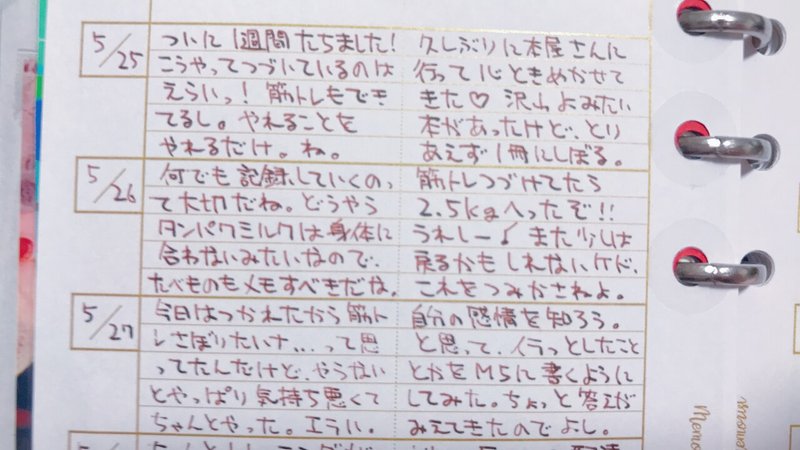 5/25
ついに1週間たちました!
こうやってつづいているのは
えらいっ!筋トレもでき
てるし。やれることを
やれるだけ。ね。
久しぶりに本屋さんに
行って心ときめかせて
きた♡ 沢山よみたい
本があったけど、とり
あえず1冊にしぼる。
5/26
何でも記録していくのっ
て大切だね。どうやら
タンパクミルクは身体に
合わないみたいなので、
たべものもメモすべきだな。
筋トレつづけてたら
2.5kgへったぞ!!
うれしー♪ また少しは
戻るかもしれないケド、
これをつみかさねよ。
5/27
今日はつかれたから筋ト
レさぼりたいナ...って思
ってたんだけど、やらない
とやっぱり気持ち悪くて
ちゃんとやった。エライ。
自分の感情を知ろう。
と思って、イラっとしたこと
とかをM5に書くように
してみた。ちょっと答えが
みえてきたのでよし。
Memo